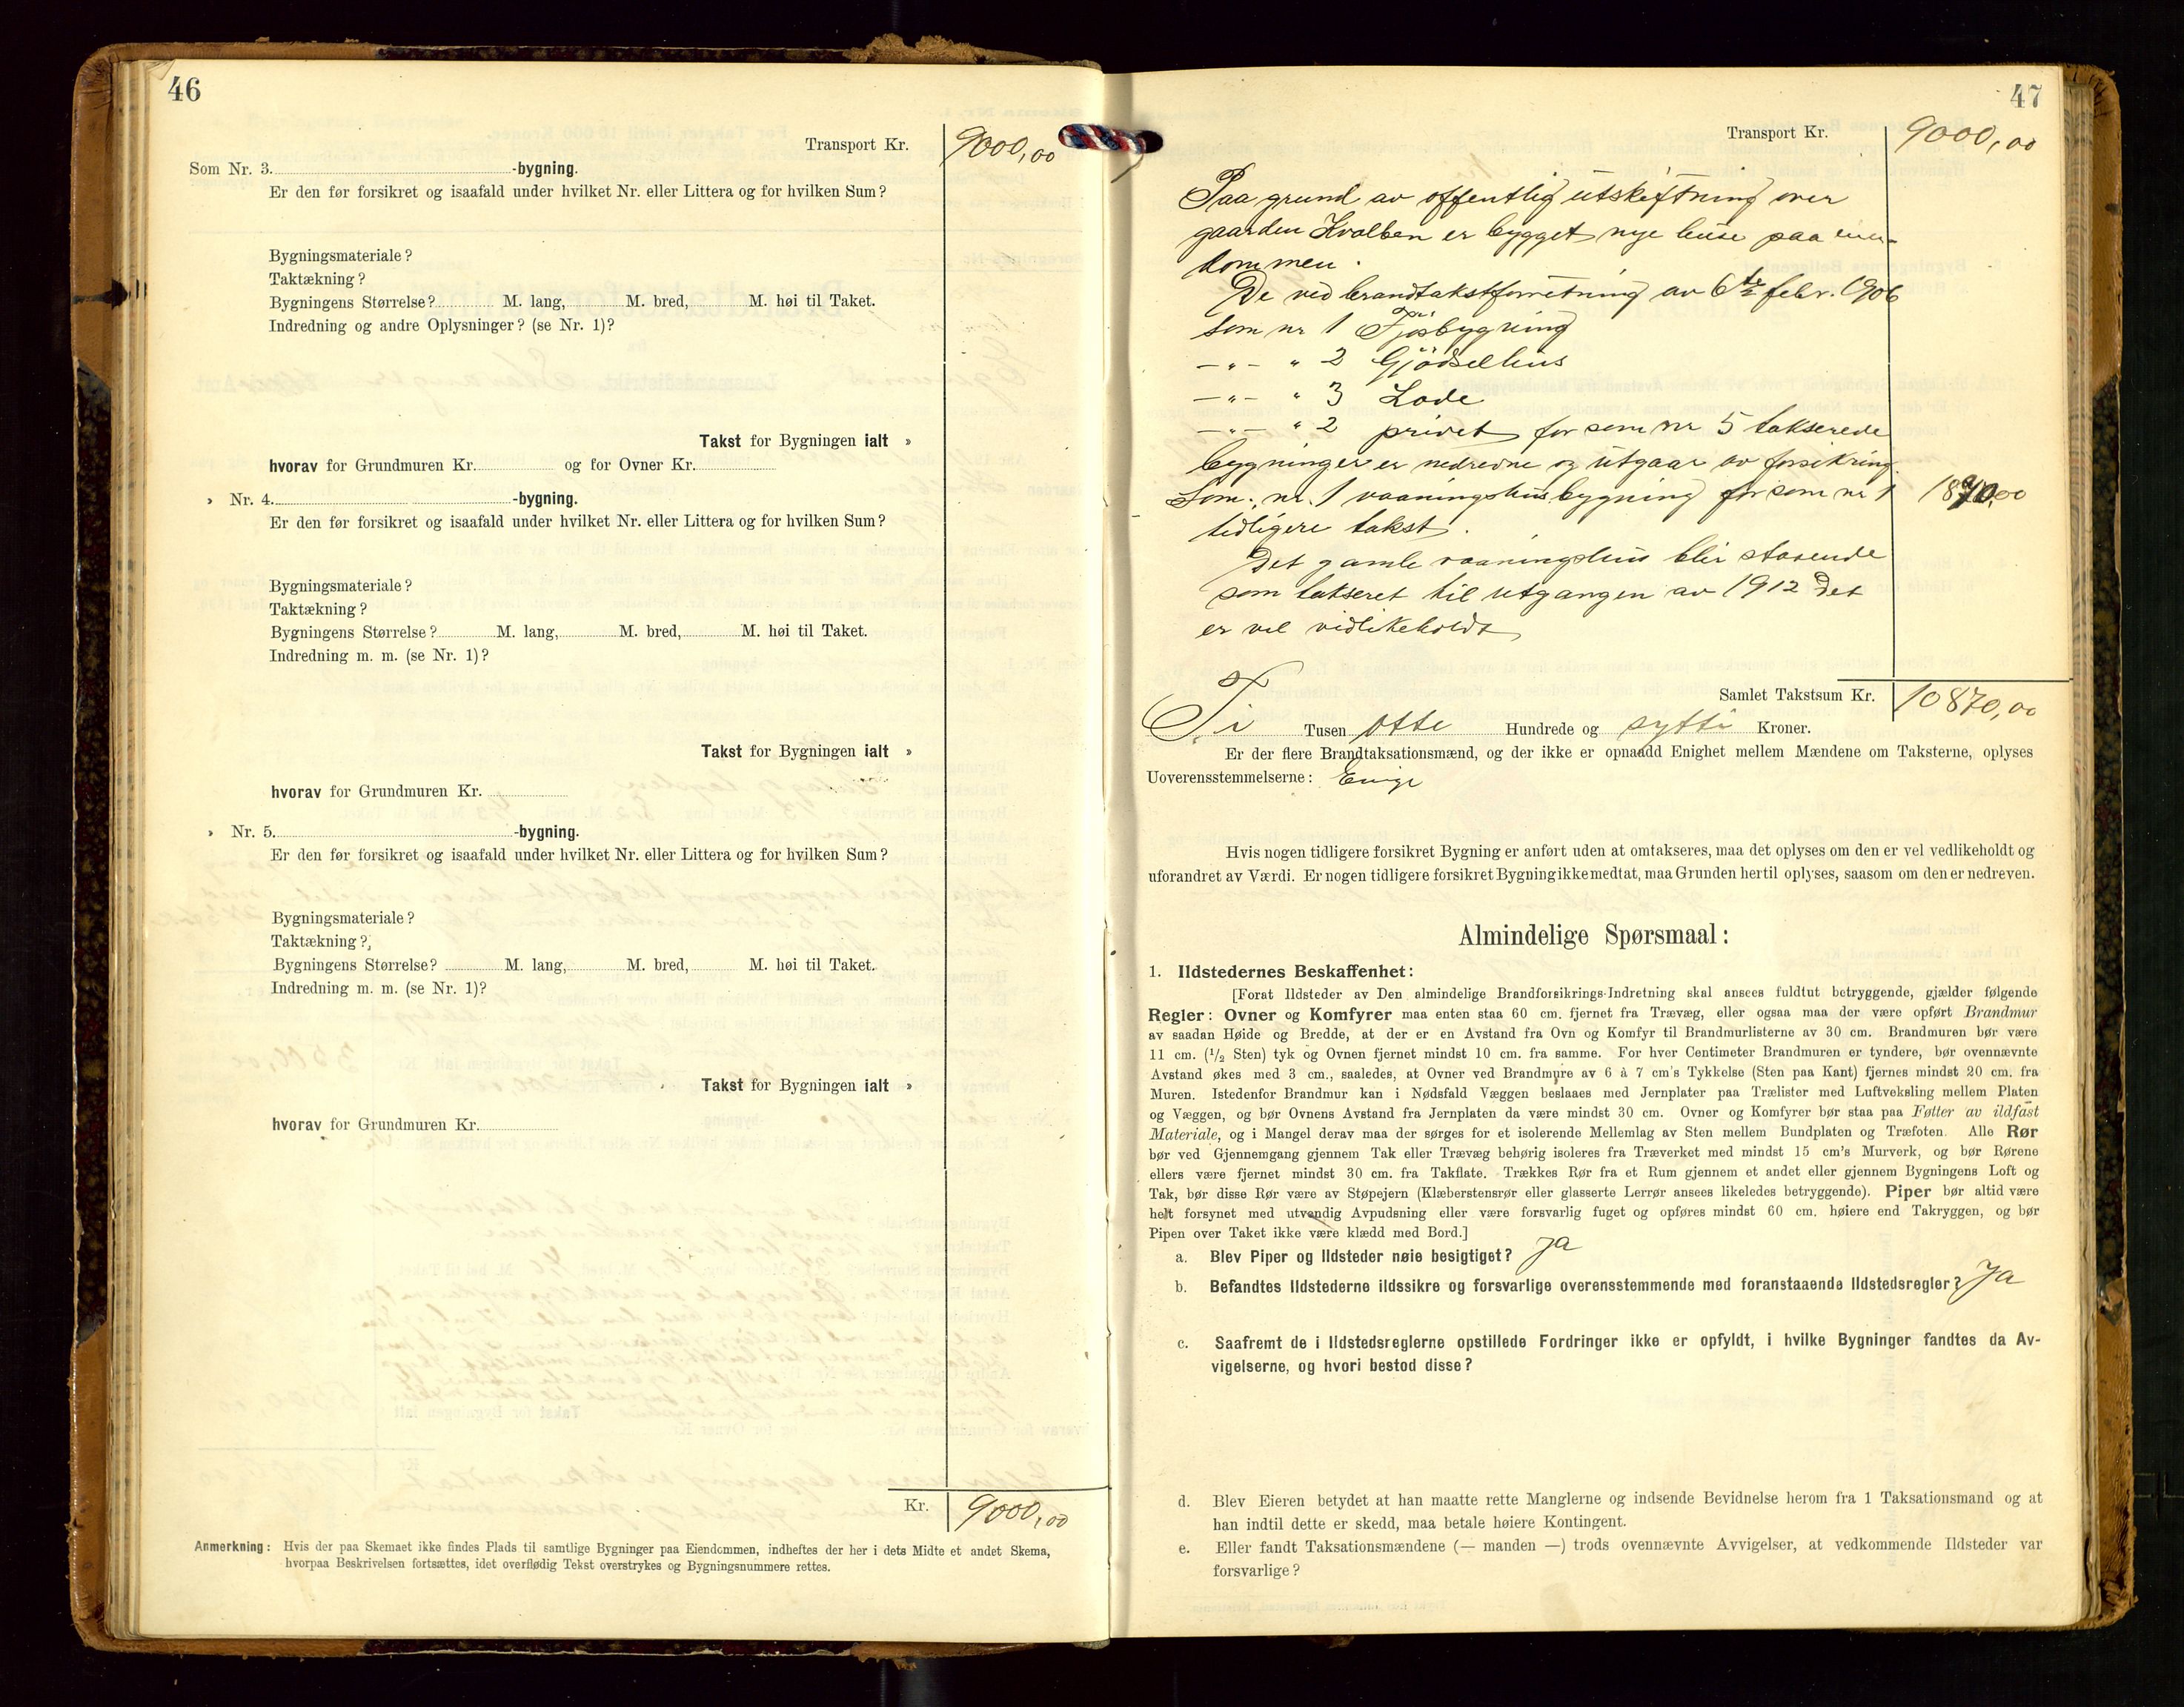 46
Transport Kr. 9000,00
Som Nr. 3. -bygning.
Er den før forsikret og isaafald under hvilket Nr. eller Littera og for hvilken Sum?
Bygningsmateriale?
Taktækning?
Bygningens Størrelse? M. lang, M. bred, M. høi til Taket.
Indredning og andre Oplysninger? (se Nr. 1)?
Takst for Bygningen ialt »
hvorav for Grundmuren Kr. og for Ovner Kr.
» Nr. 4. -bygning.
Er den før forsikret og isaafald under hvilket Nr. eller Littera og for hvilken Sum?
Bygningsmateriale?
Taktækning?
Bygningens Størrelse? M. lang, M. bred, M. høi til Taket.
Indredning m. m. (se Nr. 1)?
Takst for Bygningen ialt »
hvorav for Grundmuren Kr.
» Nr. 5. -bygning.
Er den før forsikret og isaafald under hvilket Nr. eller Littera og for hvilken Sum?
Bygningsmateriale?
Taktækning?
Bygningens Størrelse? M. lang, M. bred, M. høi til Taket.
Indredning m. m. (se Nr. 1)?
Takst for Bygningen ialt »
hvorav for Grundmuren Kr.
Kr. 9000,00
Anmerkning: Hvis der paa Skemaet ikke findes Plads til samtlige Bygninger paa Eiendommen, indheftes der her i dets Midte et andet Skema,
hvorpaa Beskrivelsen fortsættes, idet overflødig Tekst overstrykes og Bygningsnummere rettes.
47
Transport Kr. 9000,00
Paa grund av offentlig utskiftning over
gaarden Kvalben er bygget nye huse paa eien-
dommen.
De ved brandtakstforretning av 6te febr. 1906
som nr 1 Fjøsbygning
—"— " 2 Gjødselhus
—"— " 3 Lade
—"— " 2 privet for som nr 5 takserede
bygninger er nedrevne og utgaar av forsikring.
Som nr. 1 vaaningshusbygning for som nr 1 1870,00
tidligere takst.
Det gamle vaaningshus blir staaende
som takseret til utgangen av 1912 Det
er vel vidlikeholdt
Samlet Takstsum Kr. 10870,00
Ti Tusen otte Hundrede og sytti Kroner.
Er der flere Brandtaksationsmænd, og der ikke er opnaadd Enighet mellem Mændene om Taksterne, oplyses
Uoverensstemmelserne: Enige
Hvis nogen tidligere forsikret Bygning er anført uden at omtakseres, maa det oplyses om den er vel vedlikeholdt og
uforandret av Værdi. Er nogen tidligere forsikret Bygning ikke medtat, maa Grunden hertil oplyses, saasom om den er nedreven.
Almindelige Spørsmaal:
1. Ildstedernes Beskaffenhet:
[Forat Ildsteder av Den almindelige Brandforsikrings-Indretning skal ansees fuldtut betryggende, gjælder følgende
Regler: Ovner og Komfyrer maa enten staa 60 cm. fjernet fra Trævæg, eller ogsaa maa der være opført Brandmur
av saadan Høide og Bredde, at der er en Avstand fra Ovn og Komfyr til Brandmurlisterne av 30 cm. Brandmuren bør være
11 cm. (1/2 Sten) tyk og Ovnen fjernet mindst 10 cm. fra samme. For hver Centimeter Brandmuren er tyndere, bør ovennævnte
Avstand økes med 3 cm., saaledes, at Ovner ved Brandmure av 6 à 7 cm's Tykkelse (Sten paa Kant) fjernes mindst 20 cm. fra
Muren. Istedenfor Brandmur kan i Nødsfald Væggen beslaaes med Jernplater paa Trælister med Luftveksling mellem Platen
og Væggen, og bør Ovnens Avstand fra Jernplaten da være mindst 30 cm. Ovner og Komfyrer bør staa paa Føtter av ildfast
Materiale, og i Mangel derav maa der sørges for et isolerende Mellemlag av Sten mellem Bundplaten og Træfoten. Alle Rør
bør ved Gjennemgang gjennem Tak eller Trævæg behørig isoleres fra Træverket med mindst 15 cm's Murverk, og bør Rørene
ellers være fjernet mindst 30 cm. fra Takflate. Trækkes Rør fra et Rum gjennem et andet eller gjennem Bygningens Loft og
Tak, bør disse Rør være av Støpejern (Klæberstensrør eller glasserte Lerrør ansees likeledes betryggende). Piper bør altid være
helt forsynet med utvendig Avpudsning eller være forsvarlig fuget og opføres mindst 60 cm. høiere end Takryggen, og bør
Pipen over Taket ikke være klædd med Bord.]
a. Blev Piper og Ildsteder nøie besigtiget? Ja
b. Befandtes Ildstederne ildssikre og forsvarlige overensstemmende med foranstaaende Ildstedsregler? Ja
c. Saafremt de i Ildstedsreglerne opstillede Fordringer ikke er opfyldt, i hvilke Bygninger fandtes da Av-
vigelserne, og hvori bestod disse?
d. Blev Eieren betydet at han maatte rette Manglerne og indsende Bevidnelse herom fra 1 Taksationsmand og at
han indtil dette er skedd, maa betale høiere Kontingent.
e. Eller fandt Taksationsmændene (— manden —) trods ovennævnte Avvigelser, at vedkommende Ildsteder var
forsvarlige?